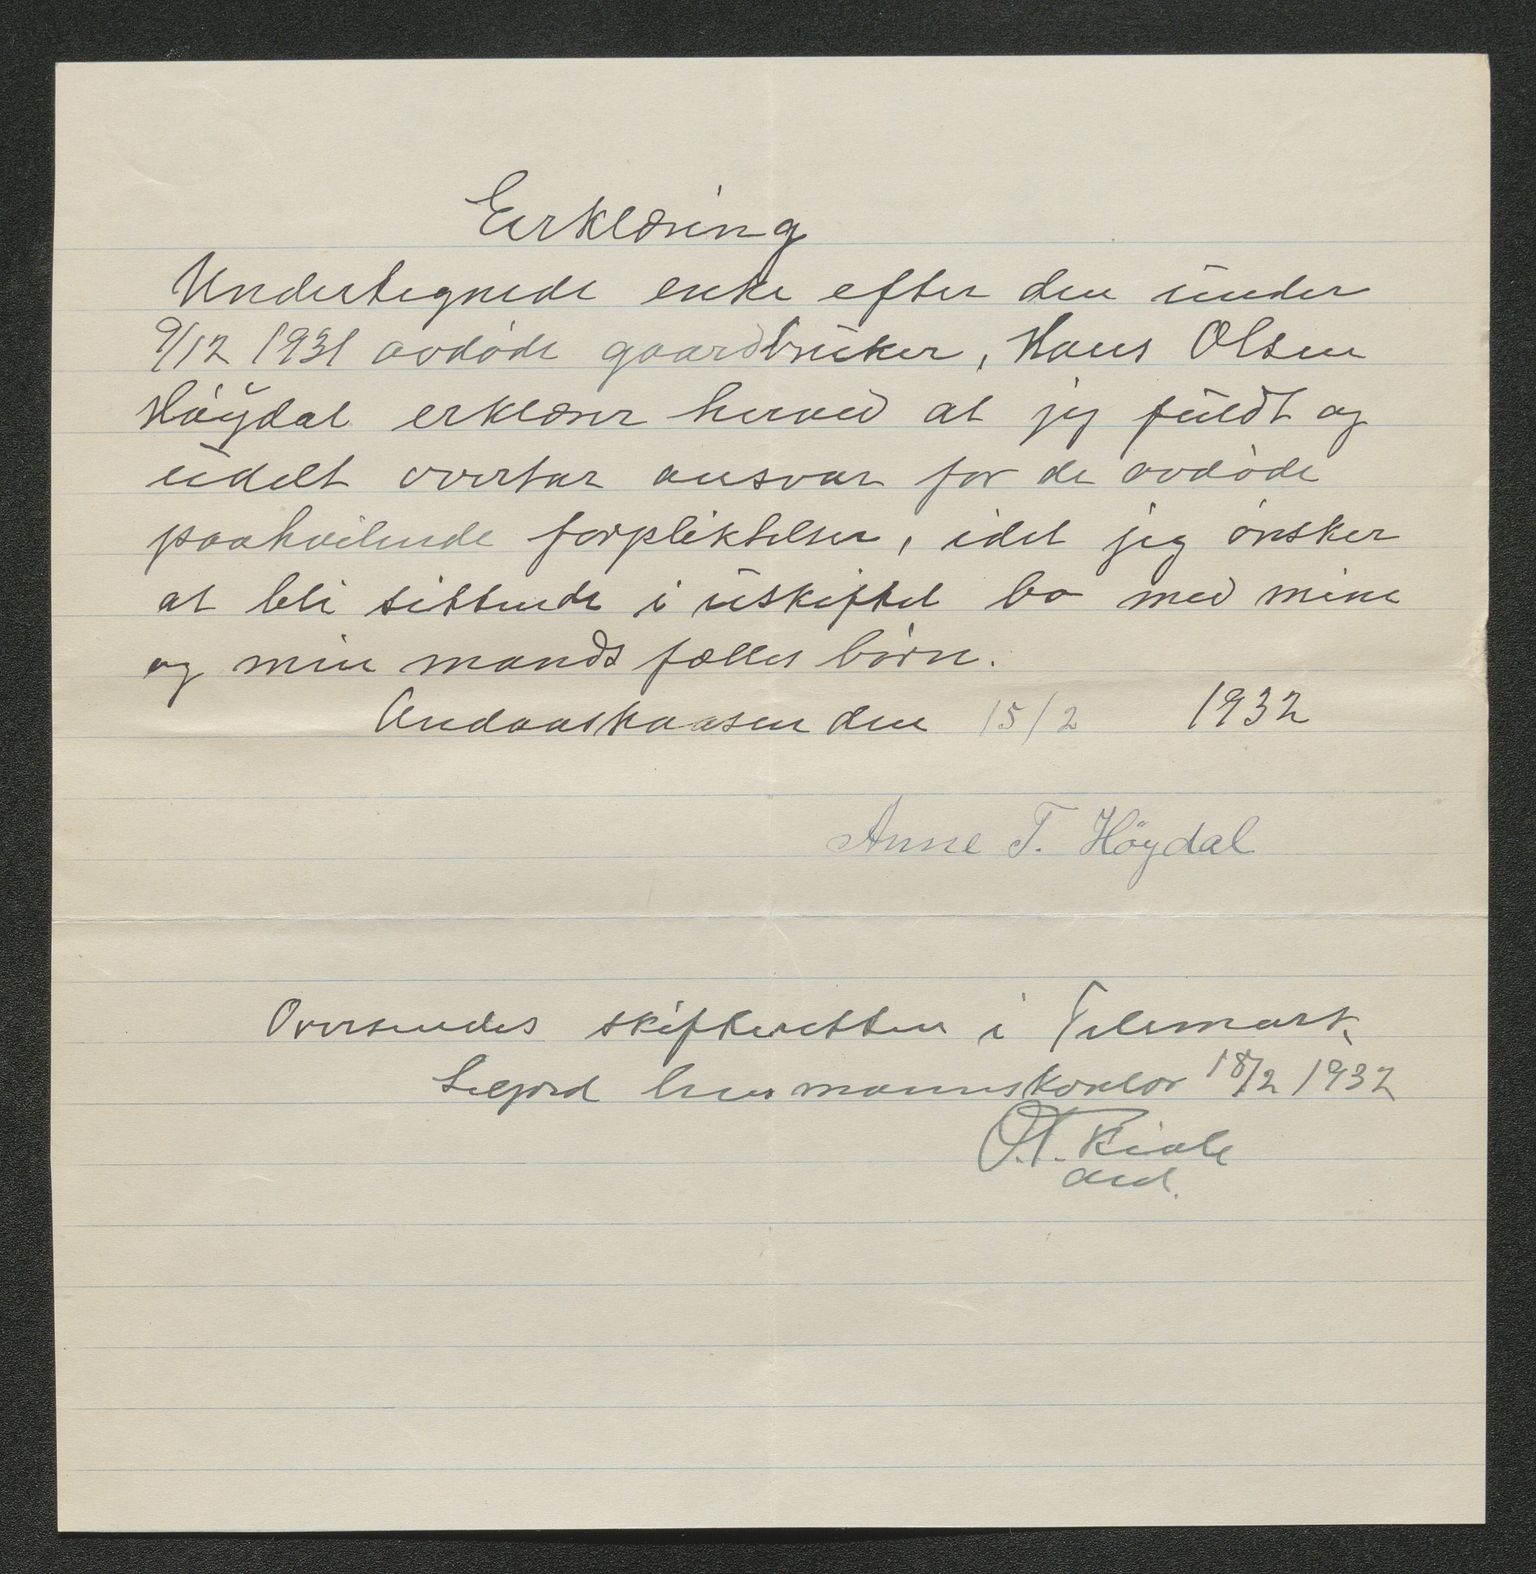 Erklæring
Undertegnede enke efter den under
9/12 1931 avdøde gaardbruker, Hans Olsen
Høydal erklærer herved at jeg fuldt og
udelt overtar ansvar for de avdøde
paahvilende forpliktelser, idet jeg ønsker
at bli sittende i uskiftet bo med mine
og min mands fælles børn.
Andaaskaasen den 15/2 1932
Anne T. Høydal
Oversendes skifteretten i Telemark.
lensmannskontor 18/2 1932